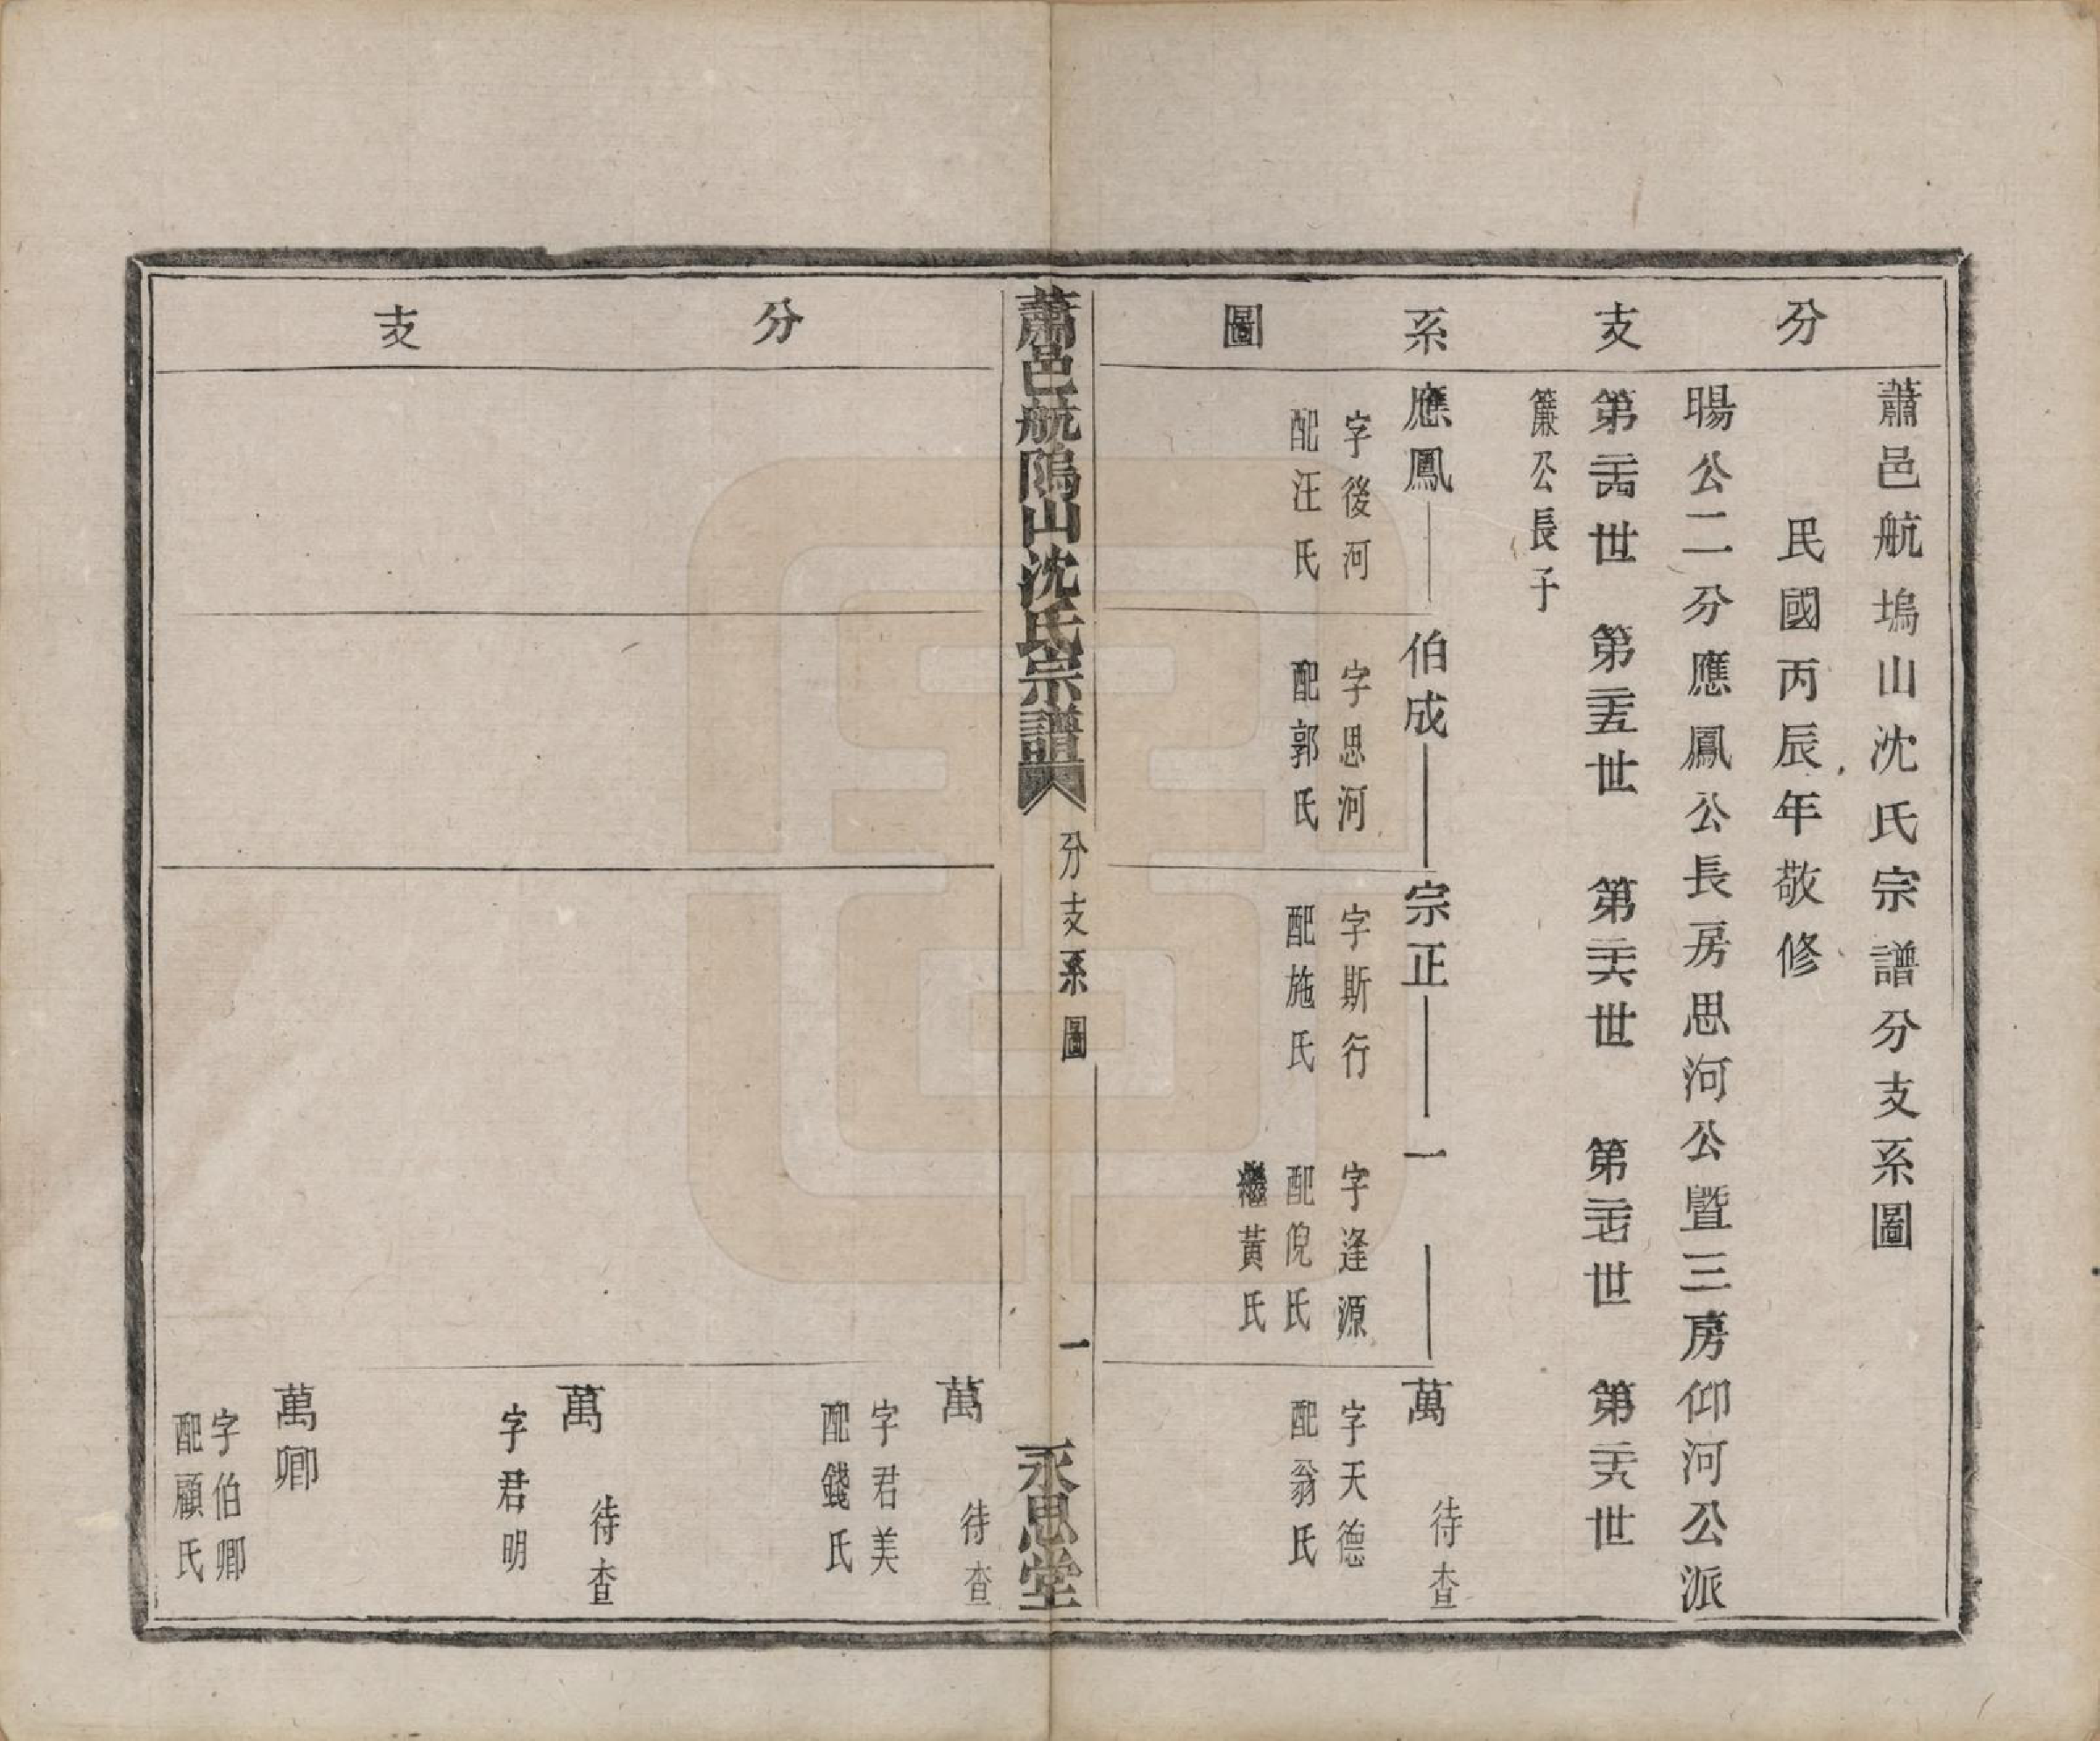 分支系圖
蕭邑航塢山沈氏宗譜分支系圖
民國丙辰年敬修
暘公二分應鳳公長房思河公暨三房仰河公派
第二十四世　第二十五世　第二十六世　第二十七世　第二十八世
簾公長子
應鳳
字後河
配汪氏
伯成
字思河
配郭氏
宗正
字斯行
配施氏
一
字逢源
配倪氏
繼黃氏
萬
待查
字天德
配翁氏
蕭邑航塢山沈氏宗譜
分支系圖
一
永思堂
分支
萬
待查
字君美
配錢氏
萬
待查
字君明
萬卿
字伯卿
配顧氏